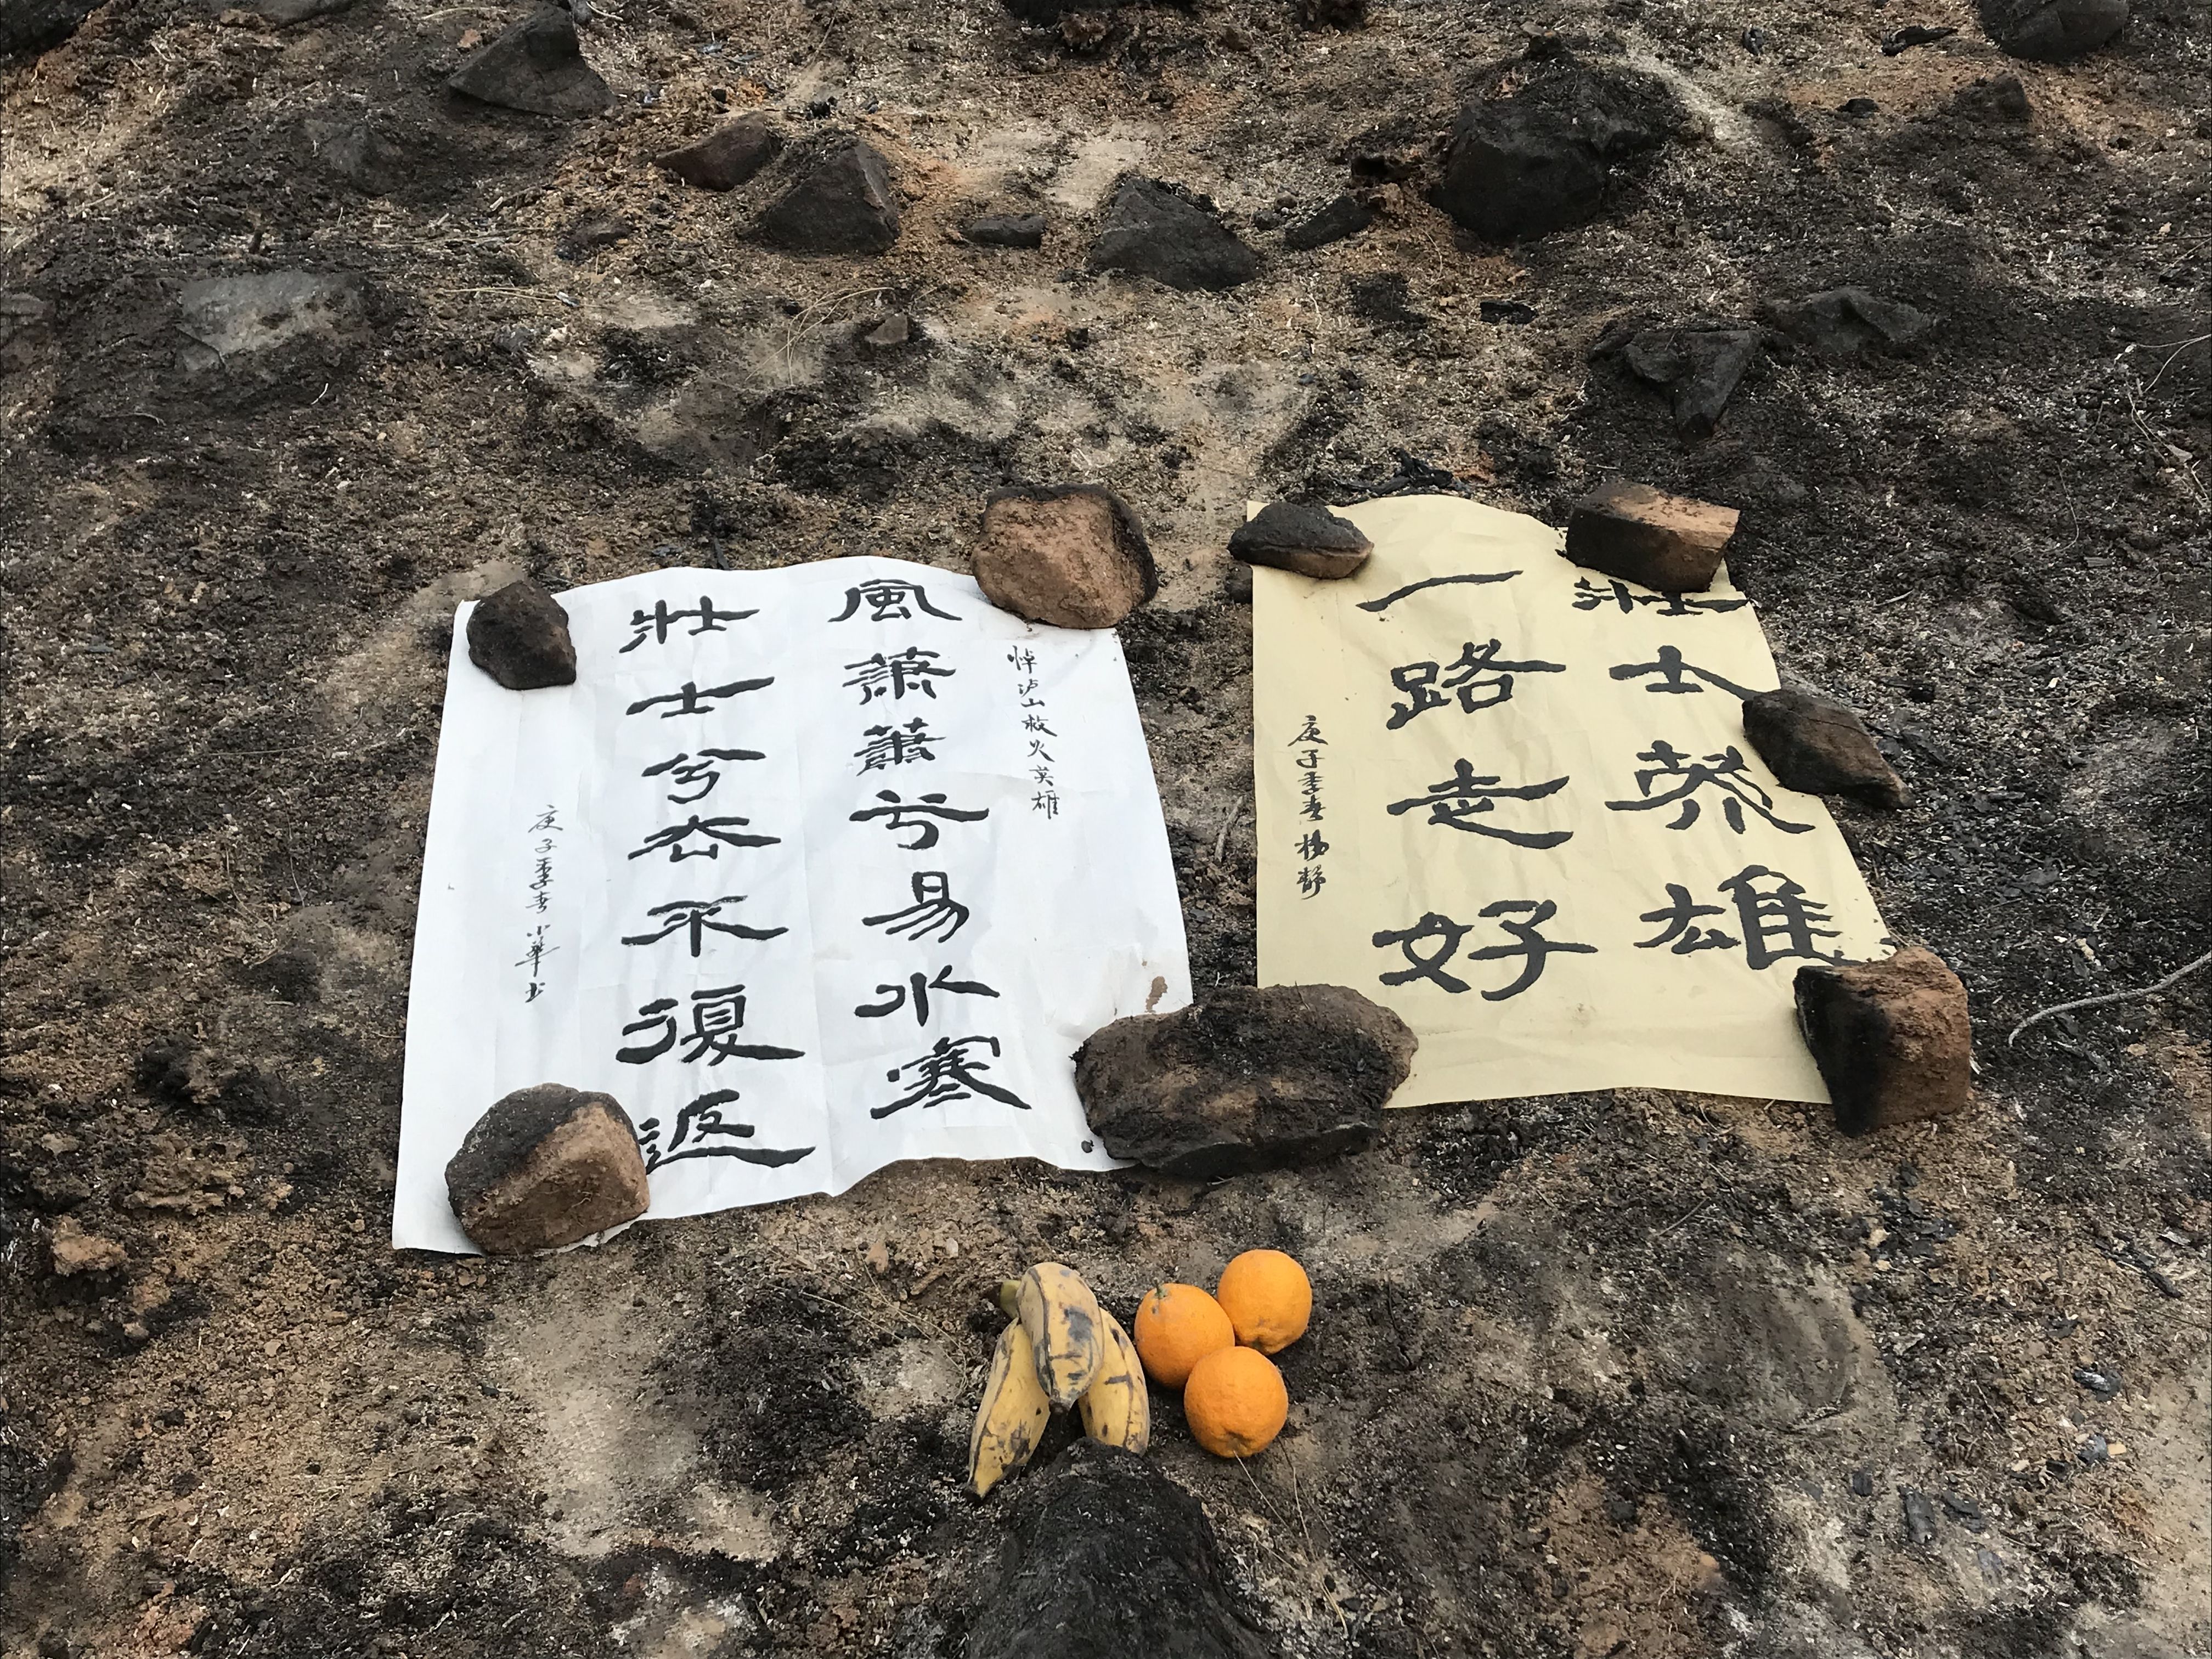 悼泸山救火英雄
風蕭蕭兮易水寒
壯士兮去不復返
庚子季春小華书
壯士英雄
一路走好
庚子季春杨静